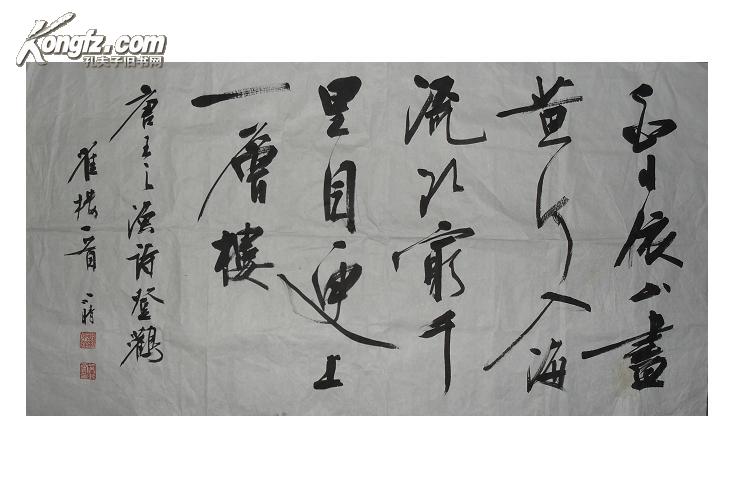 Kongfz.com
孔夫子旧书网
白日依山盡
黄河入海
流欲窮千
里目更上
一層樓
唐王之渙詩登鸛
雀楼一首